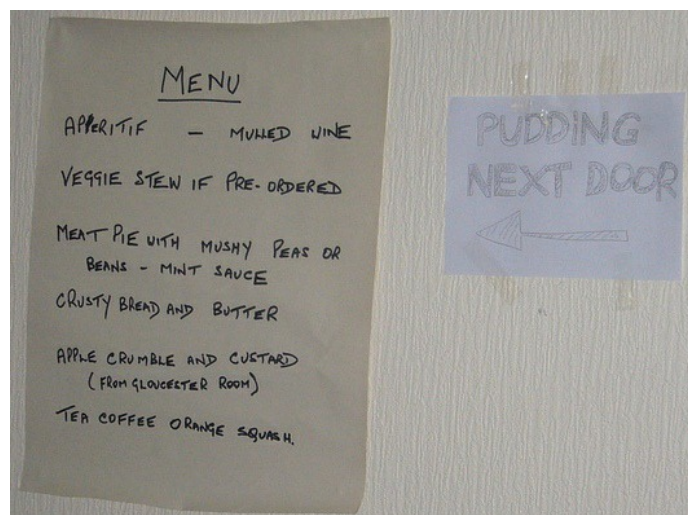 MENU
APPERITIF - MULLED WINE
VEGGIE STEW IF PRE-ORDERED
MEAT PIE WITH MUSHY PEAS OR
BEANS - MINT SAUCE
CRUSTY BREAD AND BUTTER
APPLE CRUMBLE AND CUSTARD
(FROM GLOUCESTER ROOM)
TEA COFFEE ORANGE SQUASH.
PUDDING
NEXT DOOR